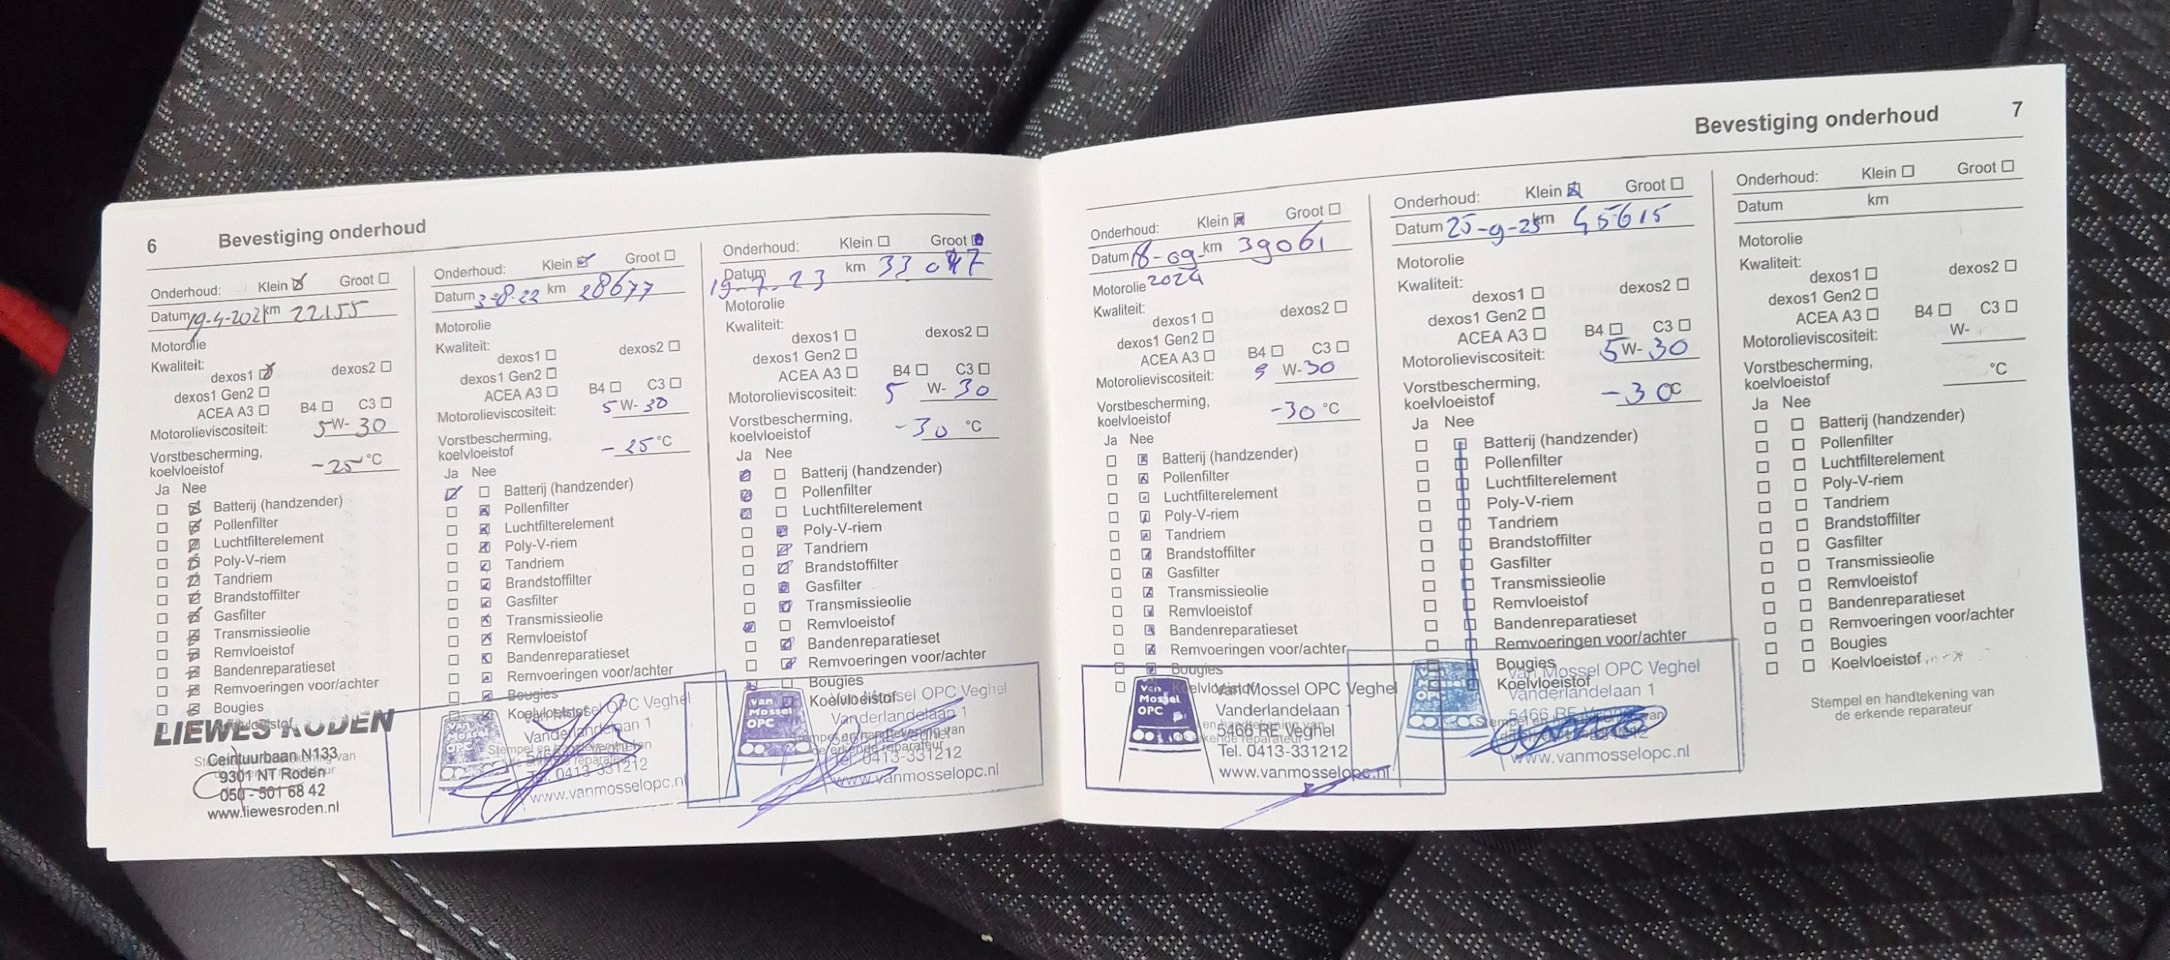 6 Bevestiging onderhoud
Onderhoud: Klein Groot
Datum 19-4-2021 km 22155
Motorolie
Kwaliteit:
dexos1 dexos2
dexos1 Gen2
ACEA A3 B4 C3
Motorolieviscositeit: 5 W- 30
Vorstbescherming,
koelvloeistof -25 °C
Ja Nee
Batterij (handzender)
Pollenfilter
Luchtfilterelement
Poly-V-riem
Tandriem
Brandstoffilter
Gasfilter
Transmissieolie
Remvloeistof
Bandenreparatieset
Remvoeringen voor/achter
Bougies
LIEWES RODEN
Ceintuurbaan N133
9301 NT Roden
050 - 501 68 42
www.liewesroden.nl
Onderhoud: Klein Groot
Datum 3-8-22 km 28677
Motorolie
Kwaliteit:
dexos1 dexos2
dexos1 Gen2
ACEA A3 B4 C3
Motorolieviscositeit: 5 W- 30
Vorstbescherming,
koelvloeistof -25 °C
Ja Nee
Batterij (handzender)
Pollenfilter
Luchtfilterelement
Poly-V-riem
Tandriem
Brandstoffilter
Gasfilter
Transmissieolie
Remvloeistof
Bandenreparatieset
Remvoeringen voor/achter
Bougies
Koelvloeistof
Van Mossel OPC Veghel
Vanderlandelaan 1
Tel. 0413-331212
www.vanmosselopc.nl
Onderhoud: Klein Groot
Datum 19-7-23 km 33047
Motorolie
Kwaliteit:
dexos1 dexos2
dexos1 Gen2
ACEA A3 B4 C3
Motorolieviscositeit: 5 W- 30
Vorstbescherming,
koelvloeistof -30 °C
Ja Nee
Batterij (handzender)
Pollenfilter
Luchtfilterelement
Poly-V-riem
Tandriem
Brandstoffilter
Gasfilter
Transmissieolie
Remvloeistof
Bandenreparatieset
Remvoeringen voor/achter
Bougies
Koelvloeistof
Van Mossel OPC
Van Mossel OPC Veghel
Vanderlandelaan 1
Tel. 0413-331212
www.vanmosselopc.nl
Bevestiging onderhoud 7
Onderhoud: Klein Groot
Datum 18-09- km 39061
Motorolie 2024
Kwaliteit:
dexos1 dexos2
dexos1 Gen2
ACEA A3 B4 C3
Motorolieviscositeit: 5 W-30
Vorstbescherming,
koelvloeistof -30 °C
Ja Nee
Batterij (handzender)
Pollenfilter
Luchtfilterelement
Poly-V-riem
Tandriem
Brandstoffilter
Gasfilter
Transmissieolie
Remvloeistof
Bandenreparatieset
Remvoeringen voor/achter
Bougies
Koelvloeistof
Van Mossel OPC
Van Mossel OPC Veghel
Vanderlandelaan 1
5466 RE Veghel
Tel. 0413-331212
www.vanmosselopc.nl
Onderhoud: Klein Groot
Datum 25-9-25 km 45615
Motorolie
Kwaliteit:
dexos1 dexos2
dexos1 Gen2
ACEA A3 B4 C3
Motorolieviscositeit: 5 W- 30
Vorstbescherming,
koelvloeistof -30 °C
Ja Nee
Batterij (handzender)
Pollenfilter
Luchtfilterelement
Poly-V-riem
Tandriem
Brandstoffilter
Gasfilter
Transmissieolie
Remvloeistof
Bandenreparatieset
Remvoeringen voor/achter
Bougies
Koelvloeistof
Van Mossel OPC Veghel
Vanderlandelaan 1
5466 RE Veghel
www.vanmosselopc.nl
Onderhoud: Klein Groot
Datum km
Motorolie
Kwaliteit:
dexos1 dexos2
dexos1 Gen2
ACEA A3 B4 C3
Motorolieviscositeit: W-
Vorstbescherming,
koelvloeistof °C
Ja Nee
Batterij (handzender)
Pollenfilter
Luchtfilterelement
Poly-V-riem
Tandriem
Brandstoffilter
Gasfilter
Transmissieolie
Remvloeistof
Bandenreparatieset
Remvoeringen voor/achter
Bougies
Koelvloeistof
Stempel en handtekening van
de erkende reparateur